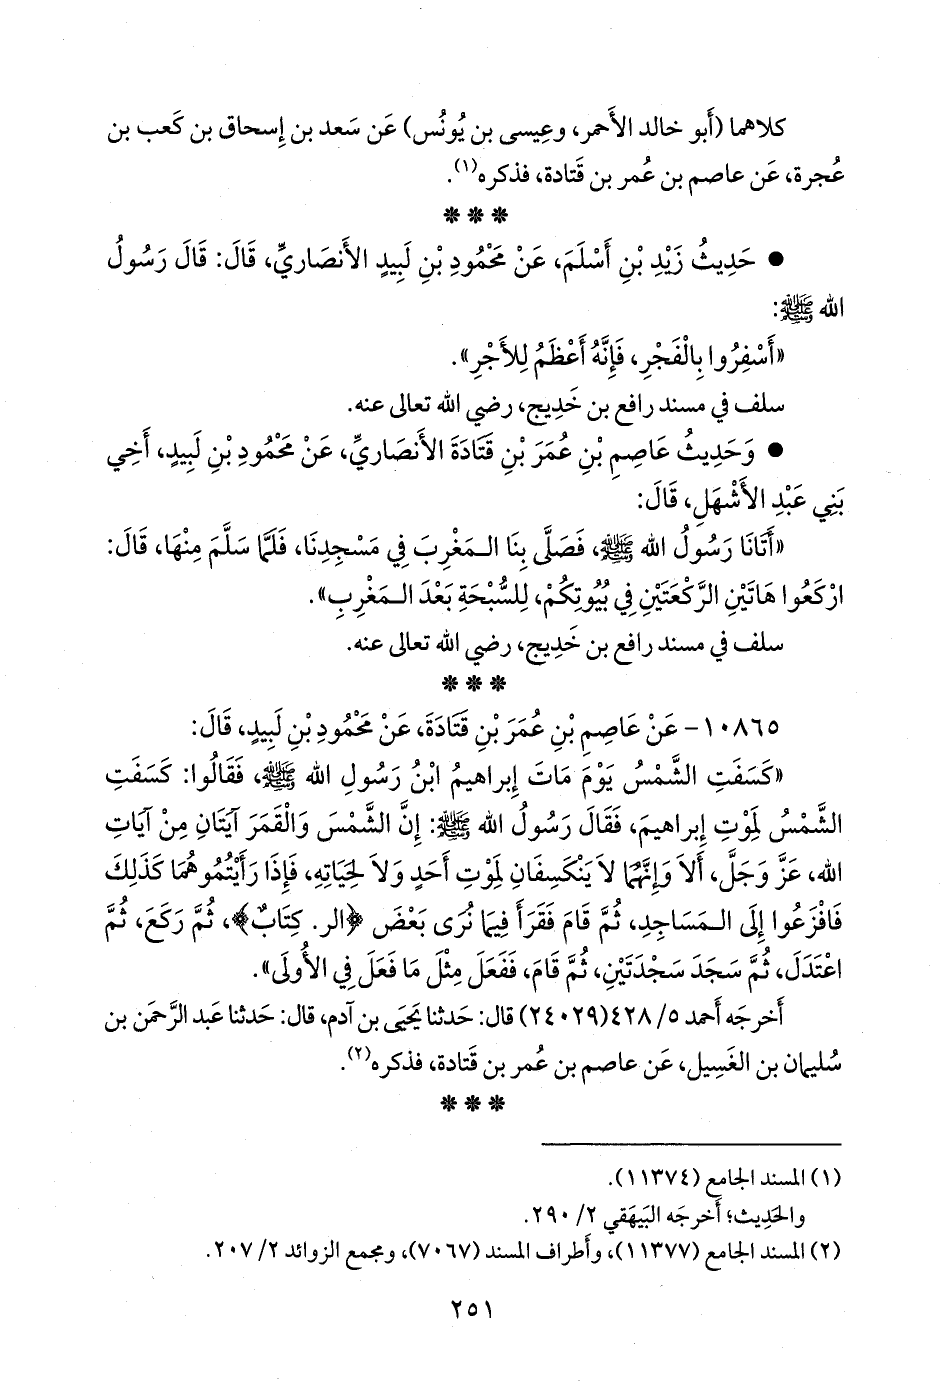 كلاهما (أَبو خالد الأَحمر، وعِيسى بن يُونُس) عَن سَعد بن إِسحاق بن كَعب بن
عُجرة، عَن عاصم بن عُمر بن قَتادة، فذكره(١).
***
● حَدِيثُ زَيْدِ بْنِ أَسْلَمَ، عَنْ مَحْمُودِ بْنِ لَبِيدٍ الأَنصَارِيِّ، قَالَ: قَالَ رَسُولُ
الله ﷺ:
«أَسْفِرُوا بِالْفَجْرِ، فَإِنَّهُ أَعْظَمُ لِلأَجْرِ».
سلف في مسند رافع بن خَدِيج، رضي الله تعالى عنه.
● وَحَدِيثُ عَاصِمِ بْنِ عُمَرَ بْنِ قَتَادَةَ الأَنصَارِيِّ، عَنْ مَحْمُودِ بْنِ لَبِيدٍ، أَخِي
بَنِي عَبْدِ الأَشْهَلِ، قَالَ:
«أَتَانَا رَسُولُ الله ﷺ، فَصَلَّى بِنَا الْـمَغْرِبَ فِي مَسْجِدِنَا، فَلَمَّا سَلَّمَ مِنْهَا، قَالَ:
ارْكَعُوا هَاتَيْنِ الرَّكْعَتَيْنِ فِي بُيُوتِكُمْ، لِلسُّبْحَةِ بَعْدَ الْـمَغْرِبِ».
سلف في مسند رافع بن خَدِيج، رضي الله تعالى عنه.
***
١٠٨٦٥- عَنْ عَاصِمِ بْنِ عُمَرَ بْنِ قَتَادَةَ، عَنْ مَحْمُودِ بْنِ لَبِيدٍ، قَالَ:
«كَسَفَتِ الشَّمْسُ يَوْمَ مَاتَ إِبراهِيمُ ابْنُ رَسُولِ الله ﷺ، فَقَالُوا: كَسَفَتِ
الشَّمْسُ لِمَوْتِ إِبراهيمَ، فَقَالَ رَسُولُ الله ﷺ: إِنَّ الشَّمْسَ وَالْقَمَرَ آيَتَانِ مِنْ آيَاتِ
الله، عَزَّ وَجَلَّ، أَلاَ وَإِنَّهُمَا لاَ يَنْكَسِفَانِ لِمَوْتِ أَحَدٍ وَلاَ لِحَيَاتِهِ، فَإِذَا رَأَيْتُمُوهُمَا كَذَلِكَ
فَافْزَعُوا إِلَى الْـمَسَاجِدِ، ثُمَّ قَامَ فَقَرَأَ فِيمَا نُرَى بَعْضَ ﴿الر. كِتَابٌ﴾، ثُمَّ رَكَعَ، ثُمَّ
اعْتَدَلَ، ثُمَّ سَجَدَ سَجْدَتَيْنِ، ثُمَّ قَامَ، فَفَعَلَ مِثْلَ مَا فَعَلَ فِي الأُولَى».
أَخرجَه أَحمد ٥/ ٤٢٨(٢٤٠٢٩) قال: حَدثنا يَحيَى بن آدم، قال: حَدثنا عَبد الرَّحمَن بن
سُليمان بن الغَسِيل، عَن عاصم بن عُمر بن قَتادة، فذكره(٢).
***
(١) المسند الجامع (١١٣٧٤).
والحَدِيث؛ أَخرجَه البَيهَقي ٢/ ٢٩٠.
(٢) المسند الجامع (١١٣٧٧)، وأَطراف المسند (٧٠٦٧)، ومجمع الزوائد ٢/ ٢٠٧.
٢٥١